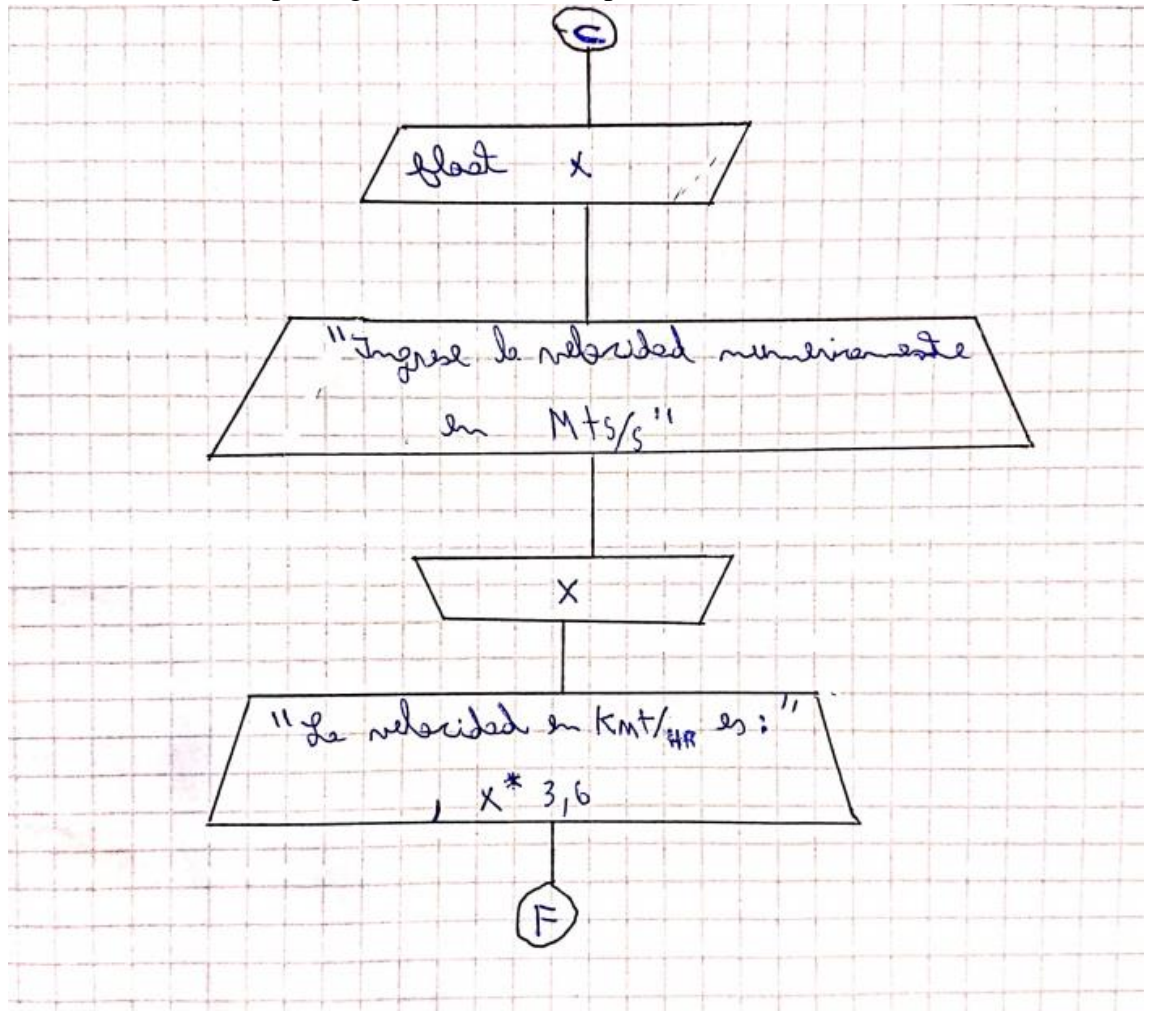 C
float x
"Ingrese la velocidad numericamente
en Mts/s"
X
"La velocidad en Kmt/HR es:"
, X* 3,6
F